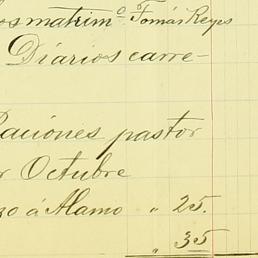 os matrimo Tomás Reyes
Diarios carre-
Raciones pastor
r Octubre
zo á Alamo " 25.
" 35